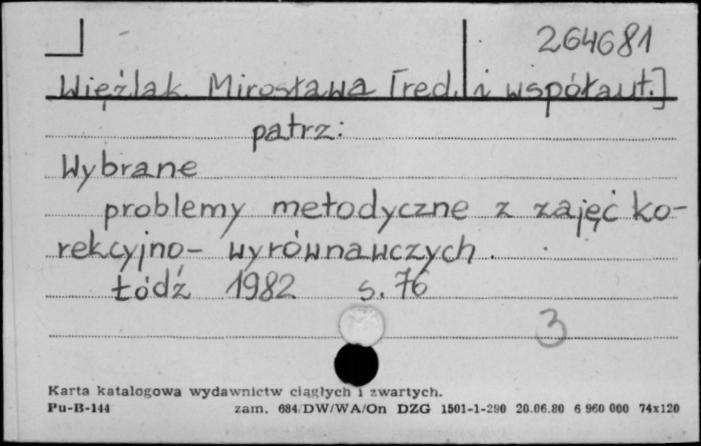 264681
Więźlak Mirosława [red. i współaut.]
patrz:
Wybrane
problemy metodyczne z zajęć ko-
rekcyjno-wyrównawczych.
Łódź 1982 s. 76
3
Karta katalogowa wydawnictw ciągłych i zwartych.
Pu-B-144 zam. 684/DW/WA/On DZG 1501-1-290 20.06.80 6 960 000 74x120